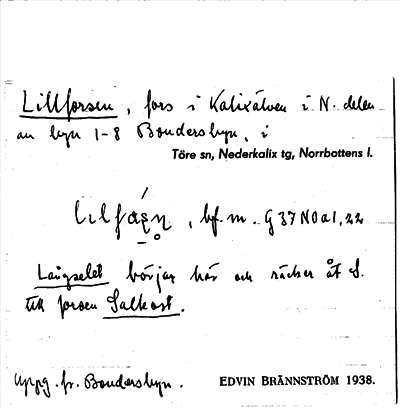 Lillforsen, fors i Kalixälven i N. delen
av byn 1-8 Bondersbyn, i
Töre sn, Nederkalix tg, Norrbottens l.
bf. m. G 37 N0a1,22
Långselet börjar här och räcker åt S.
till forsen Salkost.
Uppg. fr. Bondersbyn.
EDVIN BRÄNNSTRÖM 1938.